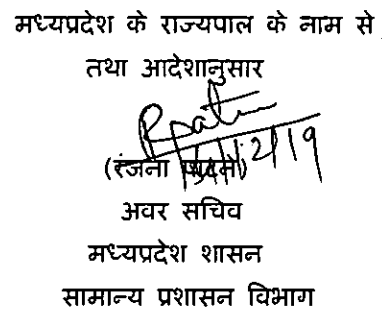 मध्यप्रदेश के राज्यपाल के नाम से
तथा आदेशानुसार
(रंजना
अवर सचिव
मध्यप्रदेश शासन
सामान्य प्रशासन विभाग